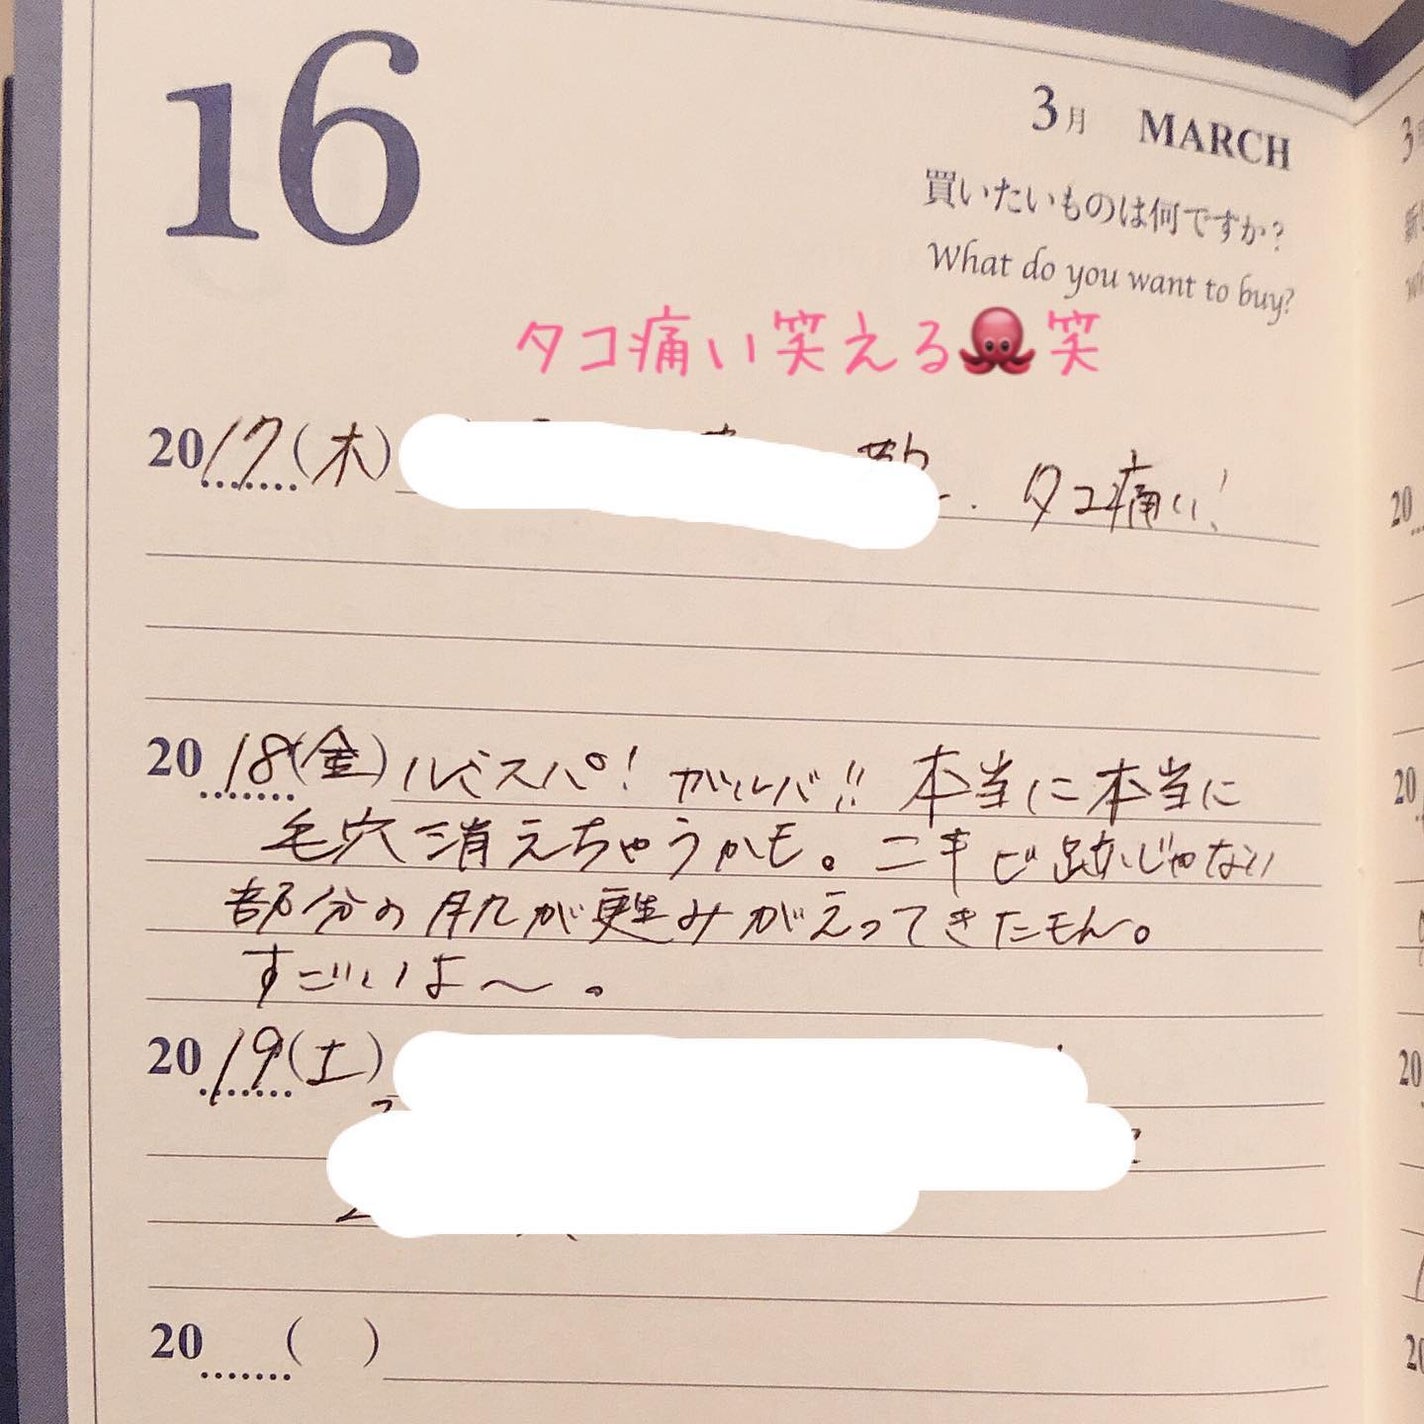 16
3月 MARCH
買いたいものは何ですか?
What do you want to buy?
タコ痛い笑える🐙笑
2017(木) タコ痛い!
2018(金) ルミスパ! ガルバ!! 本当に本当に
毛穴消えちゃうかも。ニキビ跡じゃない
部分の肌が甦みがえってきたもん。
すごいよ〜。
2019(土)
20 ( )